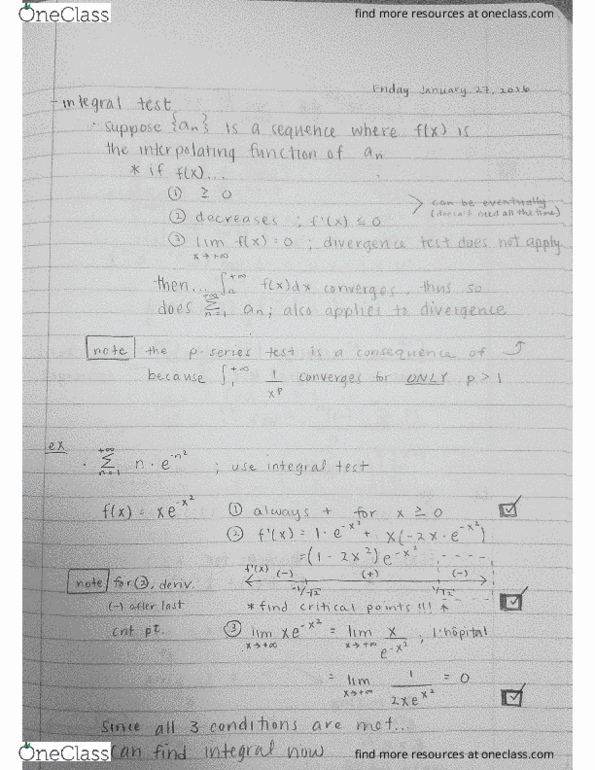 OneClass
find more resources at oneclass.com
Friday January 27, 2016
- integral test
· suppose {aₙ} is a sequence where f(x) is
the interpolating function of aₙ
* if f(x)....
① ≥ 0
② decreases ; f'(x) ≤ 0
> can be eventually
(doesn't need all the time)
③ lim x→+∞ f(x) = 0 ; divergence test does not apply
then... ∫ₙ^+∞ f(x)dx converges, thus so
does Σ n=1 ^+∞ aₙ; also applies to divergence
note the p-series test is a consequence of
because ∫₁^+∞ 1/x^p converges for ONLY p > 1
ex
· Σ n=1 ^+∞ n · e^-n² ; use integral test
f(x) = xe^-x² ① always + for x ≥ 0
② f'(x) = 1·e^-x² + x(-2x·e^-x²)
= (1 - 2x²)e^-x²
f'(x) (-) (+) (-)
-1/√2 1/√2
note for ③, deriv.
(-) after last
crit pt.
* find critical points !!!
③ lim x→+∞ xe^-x² = lim x→+∞ x/e^-x² , l'hôpital
= lim x→+∞ 1/2xe^x² = 0
Since all 3 conditions are met...
can find integral now
OneClass
find more resources at oneclass.com